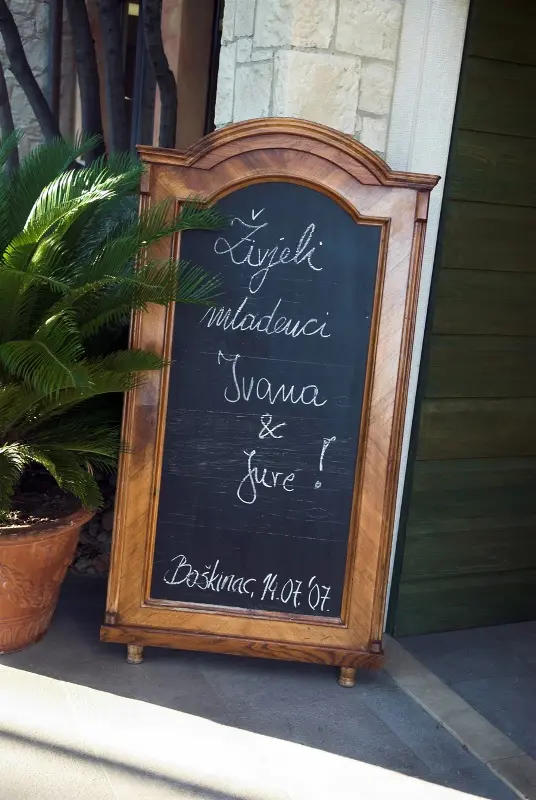 Živjeli
mladenci
Ivana
&
Jure !
Boškinac, 14.07.'07.